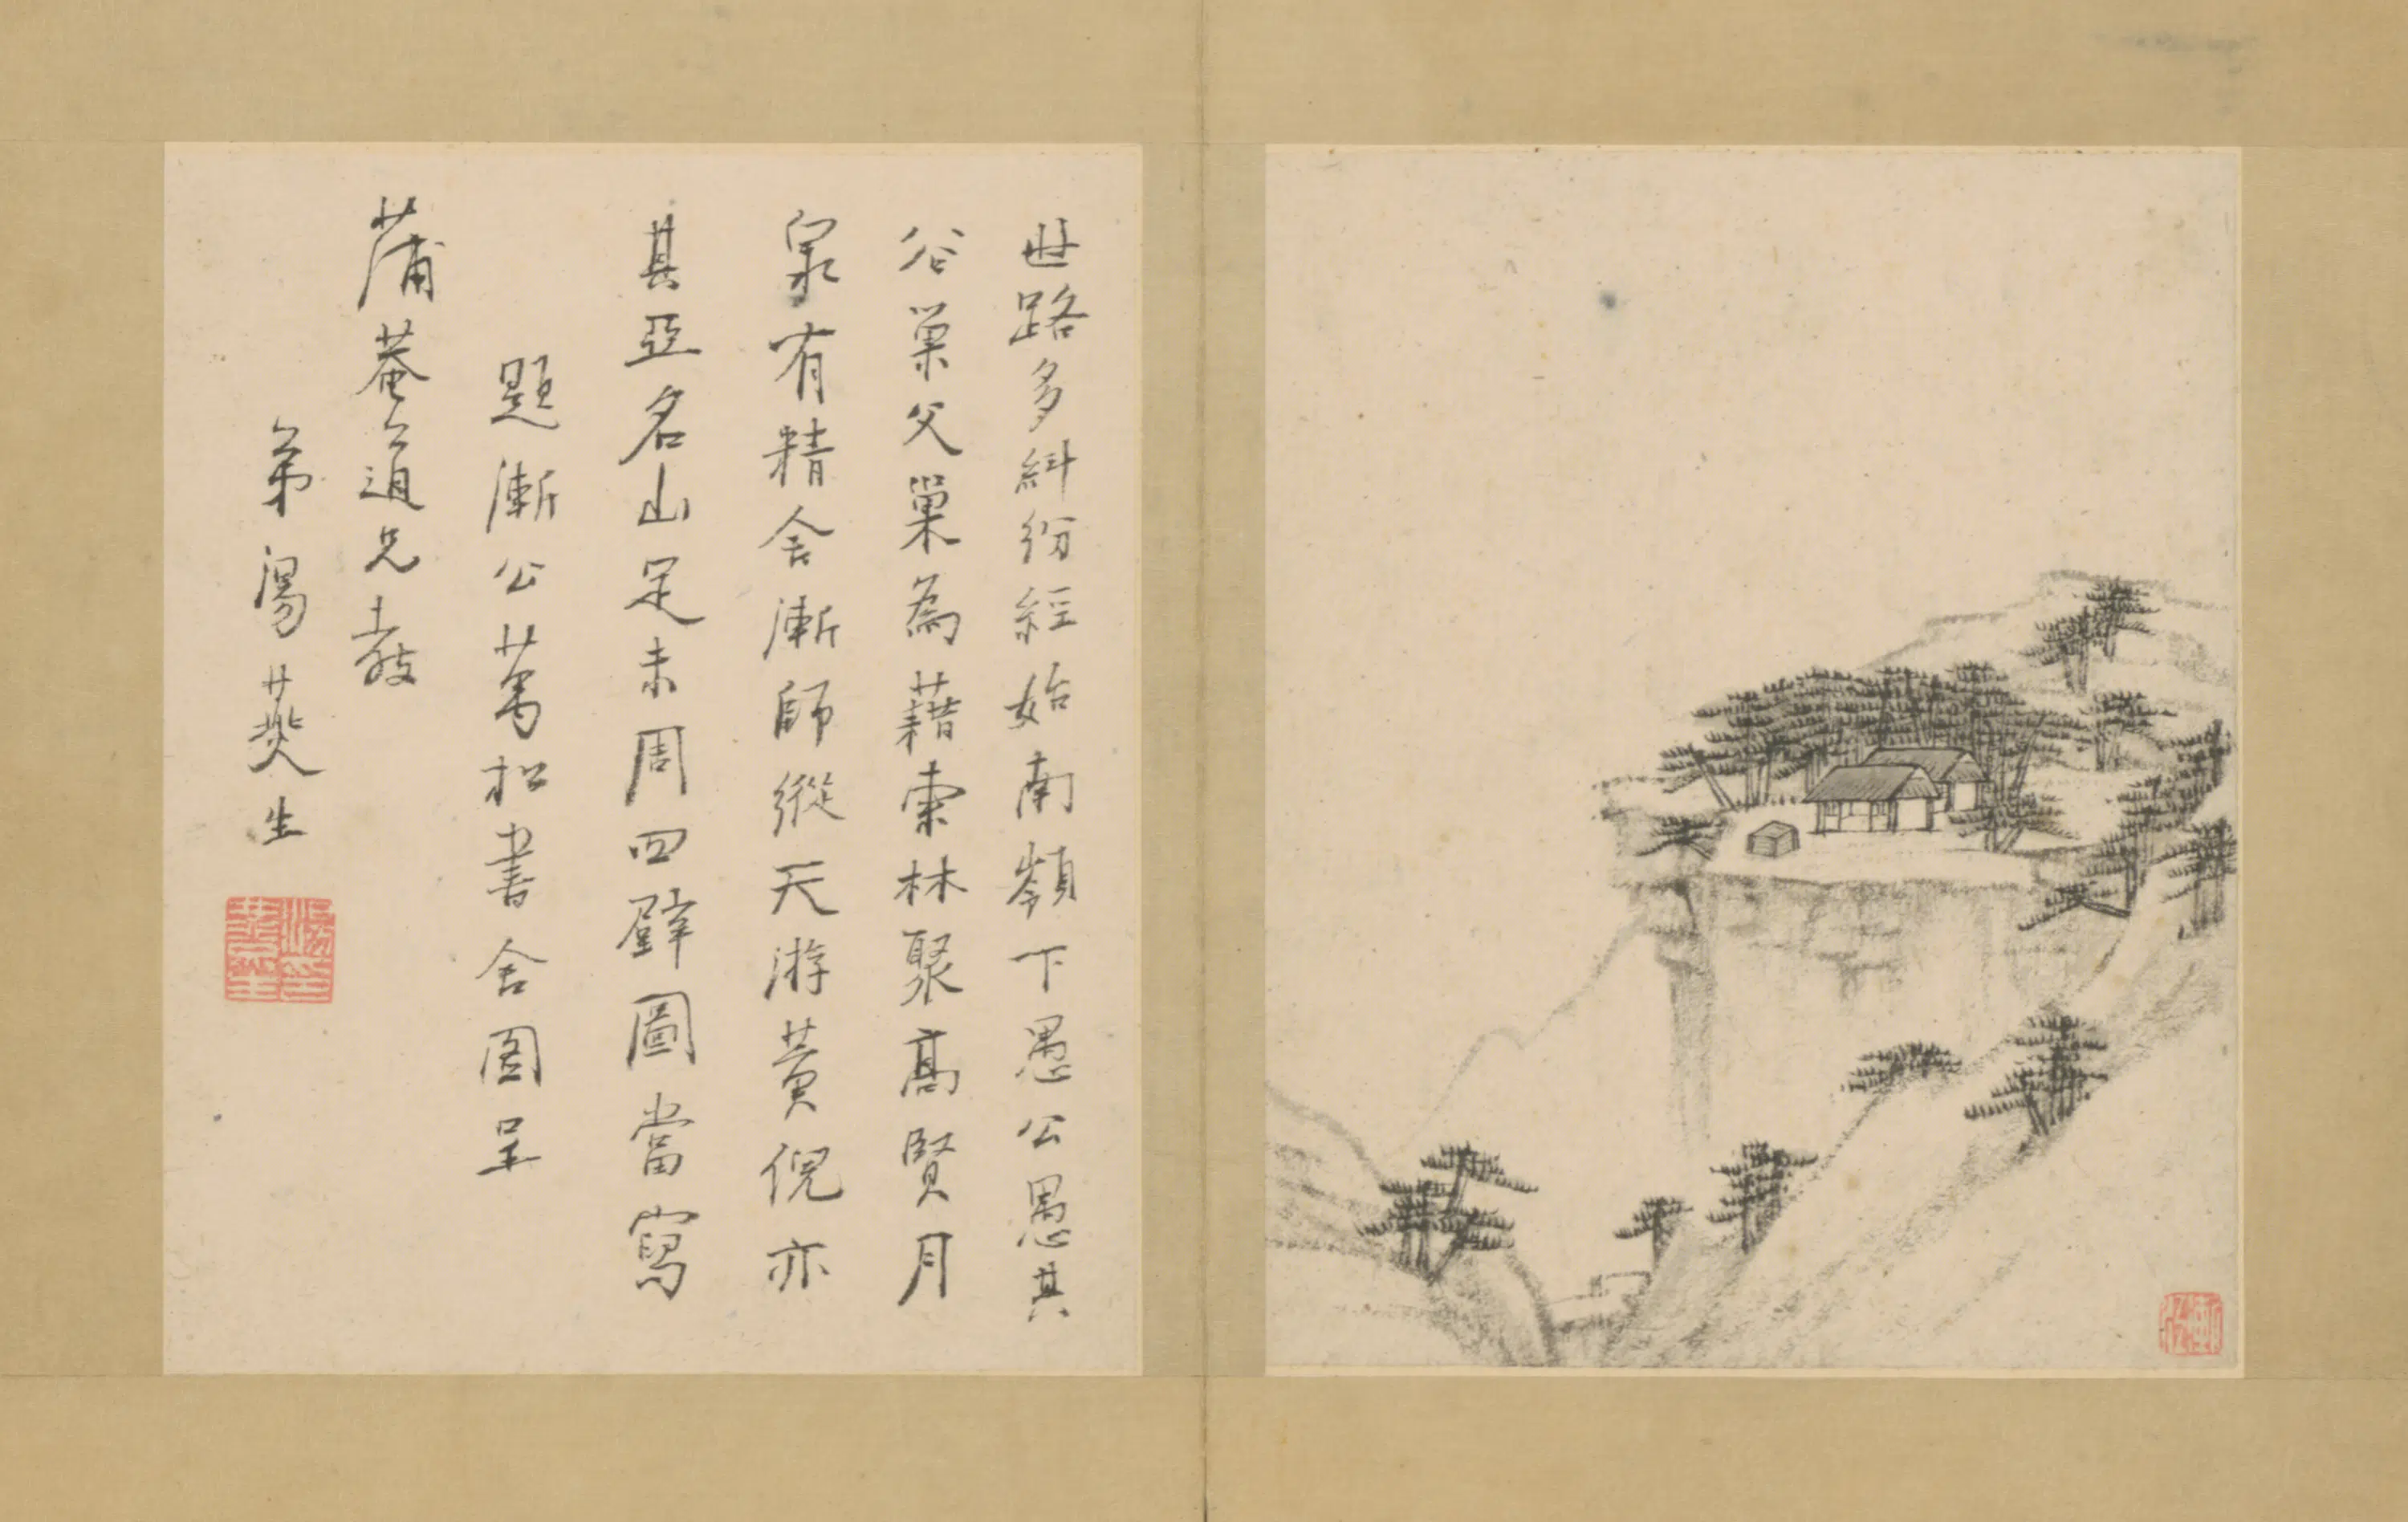 世路多糾紛經始南嶺下愚公愚其
谷巢父巢為藉索林聚高賢月
泉有精舍漸師縱天游黃倪亦
其亞名山足未周四壁圖當寫
題漸公萬松書舍圖呈
蒲菴道兄教
弟湯燕生